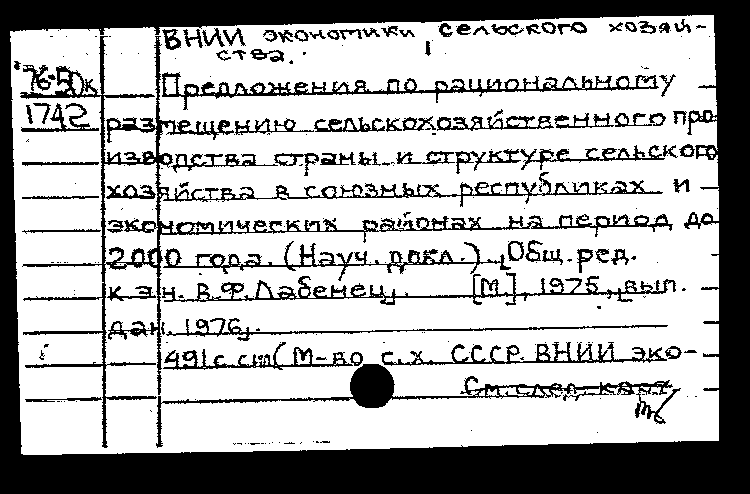 ВНИИ экономики сельского хозяй-
ства.
76-50к
Предложения по рациональному
1742
размещению сельскохозяйственного про-
изводства страны и структуре сельского
хозяйства в союзных республиках и
экономических районах на период до
2000 года. (Науч. докл.). [Общ. ред.
к.э.н. В.Ф. Лабенец]. [М], 1975, [вып.
дан. 1976].
491 с. сил (М-во с.х. СССР. ВНИИ эко-
См. след. карт.